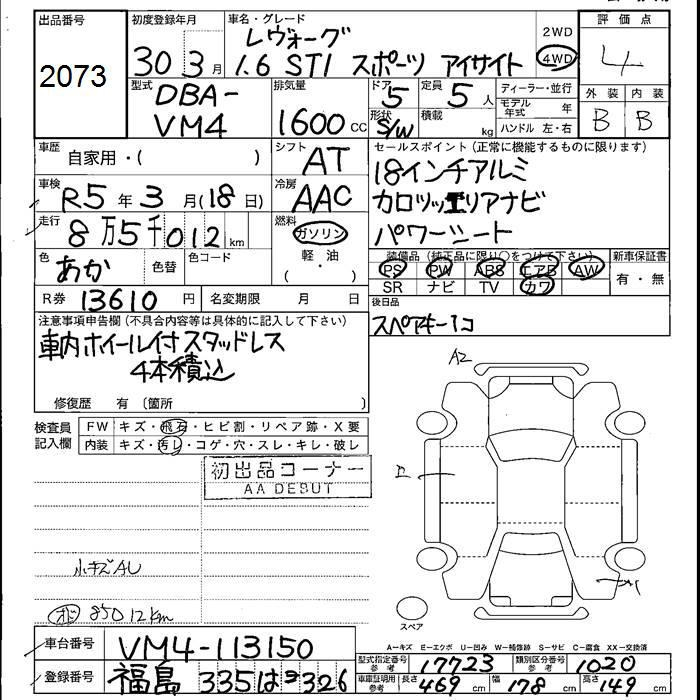 出品番号 初度登録年月 車名・グレード 2WD 評価点
2073 30 3月 レヴォーグ 4WD 4
1.6 STI スポーツ アイサイト
型式 排気量 ドア 定員 ディーラー・並行 外装 内装
DBA- 5 5人 モデル年式 年 B B
VM4 1600cc 形状 S/W 積載 kg ハンドル 左・右
車歴 自家用・( ) シフト AT セールスポイント(正常に機能するものに限ります)
18インチアルミ
車検 R5年3月(18日) 冷房 AAC カロッツェリアナビ
走行 8万5千012km 燃料 ガソリン パワーシート
軽・油
( )
色 あか 色替 色コード 装備品(純正品に限り○をつけて下さい) 新車保証書
PS PW ABS エアB AW 有・無
SR ナビ TV カワ
R券 13610円 名変期限 月 日 後日品
スペアキー1コ
注意事項申告欄(不具合内容等は具体的に記入して下さい)
車内ホイール付スタッドレス
4本積込
修復歴 有〔箇所 〕
検査員記入欄 FW キズ・飛石・ヒビ割・リペア跡・X要
内装 キズ・汚レ・コゲ・穴・スレ・キレ・破レ
初出品コーナー
AA DEBUT
A2
小キズAU
85012km
スペア
A-キズ E-エクボ U-凹み W-補修跡 S-サビ C-腐食 XX-交換済
車台番号 VM4-113150 型式指定番号 参考 17723 類別区分番号 参考 1020
登録番号 福島 335 は 326 車庫証明用 参考 長さ 469cm 幅 178cm 高さ 149cm